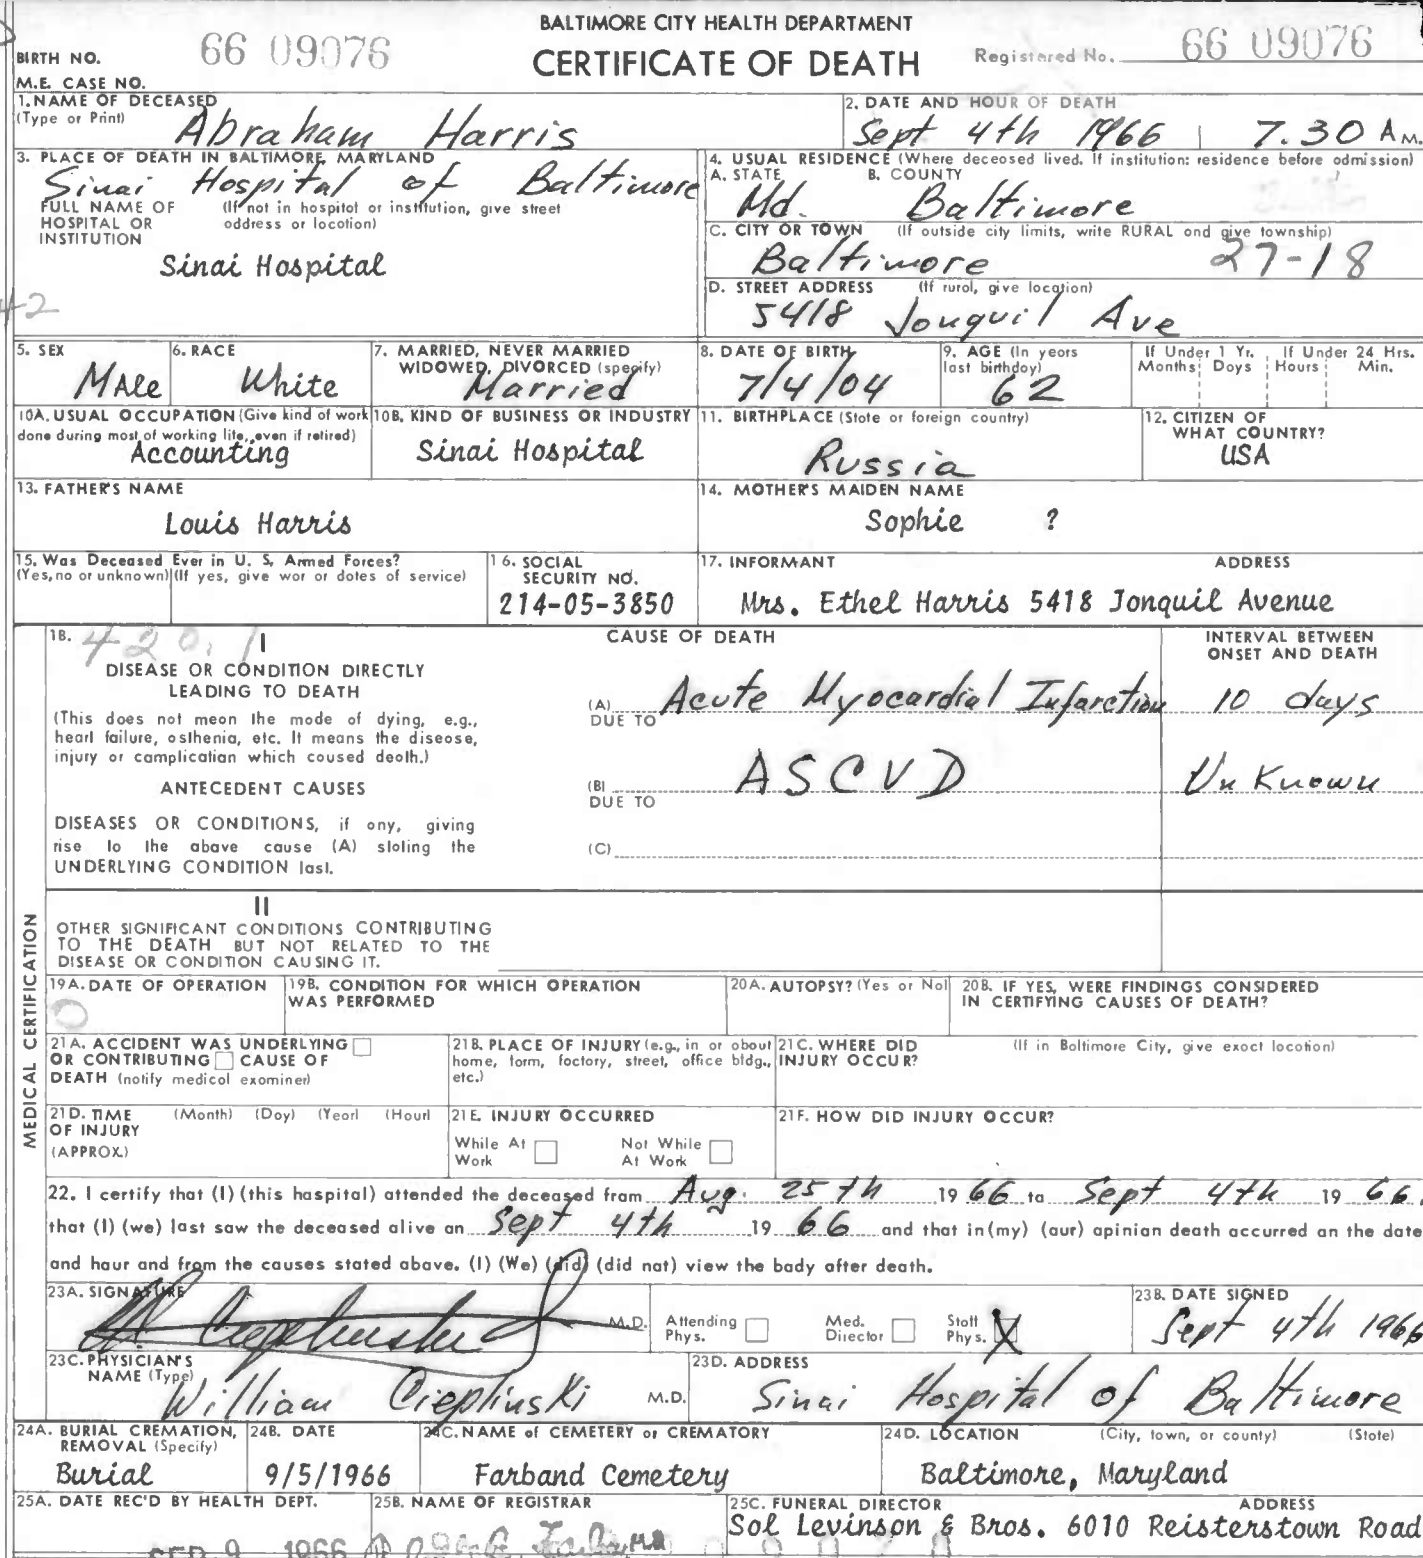 BALTIMORE CITY HEALTH DEPARTMENT
CERTIFICATE OF DEATH
BIRTH NO. 66 09076
Registered No. 66 09076
M.E. CASE NO.
1. NAME OF DECEASED
(Type or Print)
Abraham Harris
2. DATE AND HOUR OF DEATH
Sept 4th 1966 | 7.30 A M.
3. PLACE OF DEATH IN BALTIMORE, MARYLAND
Sinai Hospital of Baltimore
FULL NAME OF HOSPITAL OR INSTITUTION (If not in hospital or institution, give street address or location)
Sinai Hospital
42
4. USUAL RESIDENCE (Where deceased lived. If institution: residence before admission)
A. STATE B. COUNTY
Md. Baltimore
C. CITY OR TOWN (If outside city limits, write RURAL and give township)
Baltimore 27-18
D. STREET ADDRESS (If rural, give location)
5418 Jonquil Ave
5. SEX
Male
6. RACE
White
7. MARRIED, NEVER MARRIED
WIDOWED, DIVORCED (specify)
Married
8. DATE OF BIRTH
7/4/04
9. AGE (In years
last birthday)
62
If Under 1 Yr. If Under 24 Hrs.
Months Days Hours Min.
10A. USUAL OCCUPATION (Give kind of work
done during most of working life, even if retired)
Accounting
10B. KIND OF BUSINESS OR INDUSTRY
Sinai Hospital
11. BIRTHPLACE (State or foreign country)
Russia
12. CITIZEN OF
WHAT COUNTRY?
USA
13. FATHER'S NAME
Louis Harris
14. MOTHER'S MAIDEN NAME
Sophie ?
15. Was Deceased Ever in U. S. Armed Forces?
(Yes, no or unknown) (If yes, give war or dates of service)
16. SOCIAL
SECURITY NO.
214-05-3850
17. INFORMANT ADDRESS
Mrs. Ethel Harris 5418 Jonquil Avenue
MEDICAL CERTIFICATION
18. 420.1 I
CAUSE OF DEATH
INTERVAL BETWEEN
ONSET AND DEATH
DISEASE OR CONDITION DIRECTLY
LEADING TO DEATH
(This does not mean the mode of dying, e.g.,
heart failure, asthenia, etc. It means the disease,
injury or complication which caused death.)
(A) Acute Myocardial Infarction 10 days
DUE TO
ANTECEDENT CAUSES
(B) ASCVD Unknown
DUE TO
DISEASES OR CONDITIONS, if any, giving
rise to the above cause (A) stating the
UNDERLYING CONDITION last.
(C)
II
OTHER SIGNIFICANT CONDITIONS CONTRIBUTING
TO THE DEATH BUT NOT RELATED TO THE
DISEASE OR CONDITION CAUSING IT.
19A. DATE OF OPERATION
0
19B. CONDITION FOR WHICH OPERATION
WAS PERFORMED
20A. AUTOPSY? (Yes or No)
20B. IF YES, WERE FINDINGS CONSIDERED
IN CERTIFYING CAUSES OF DEATH?
21A. ACCIDENT WAS UNDERLYING
OR CONTRIBUTING CAUSE OF
DEATH (notify medical examiner)
21B. PLACE OF INJURY (e.g., in or about
home, farm, factory, street, office bldg.,
etc.)
21C. WHERE DID (If in Baltimore City, give exact location)
INJURY OCCUR?
21D. TIME (Month) (Day) (Year) (Hour)
OF INJURY
(APPROX.)
21E. INJURY OCCURRED
While At Work Not While At Work
21F. HOW DID INJURY OCCUR?
22. I certify that (I) (this hospital) attended the deceased from Aug. 25th 1966 to Sept 4th 1966,
that (I) (we) last saw the deceased alive on Sept 4th 1966 and that in (my) (our) opinion death occurred on the date
and hour and from the causes stated above. (I) (We) (did) (did not) view the body after death.
23A. SIGNATURE
M.D.
Attending Phys. Med. Director Staff Phys. X
23B. DATE SIGNED
Sept 4th 1966
23C. PHYSICIAN'S
NAME (Type)
William Cieplinski M.D.
23D. ADDRESS
Sinai Hospital of Baltimore
24A. BURIAL CREMATION,
REMOVAL (Specify)
Burial
24B. DATE
9/5/1966
24C. NAME of CEMETERY or CREMATORY
Farband Cemetery
24D. LOCATION (City, town, or county) (State)
Baltimore, Maryland
25A. DATE REC'D BY HEALTH DEPT.
SEP 9 1966
25B. NAME OF REGISTRAR
25C. FUNERAL DIRECTOR ADDRESS
Sol Levinson & Bros. 6010 Reisterstown Road